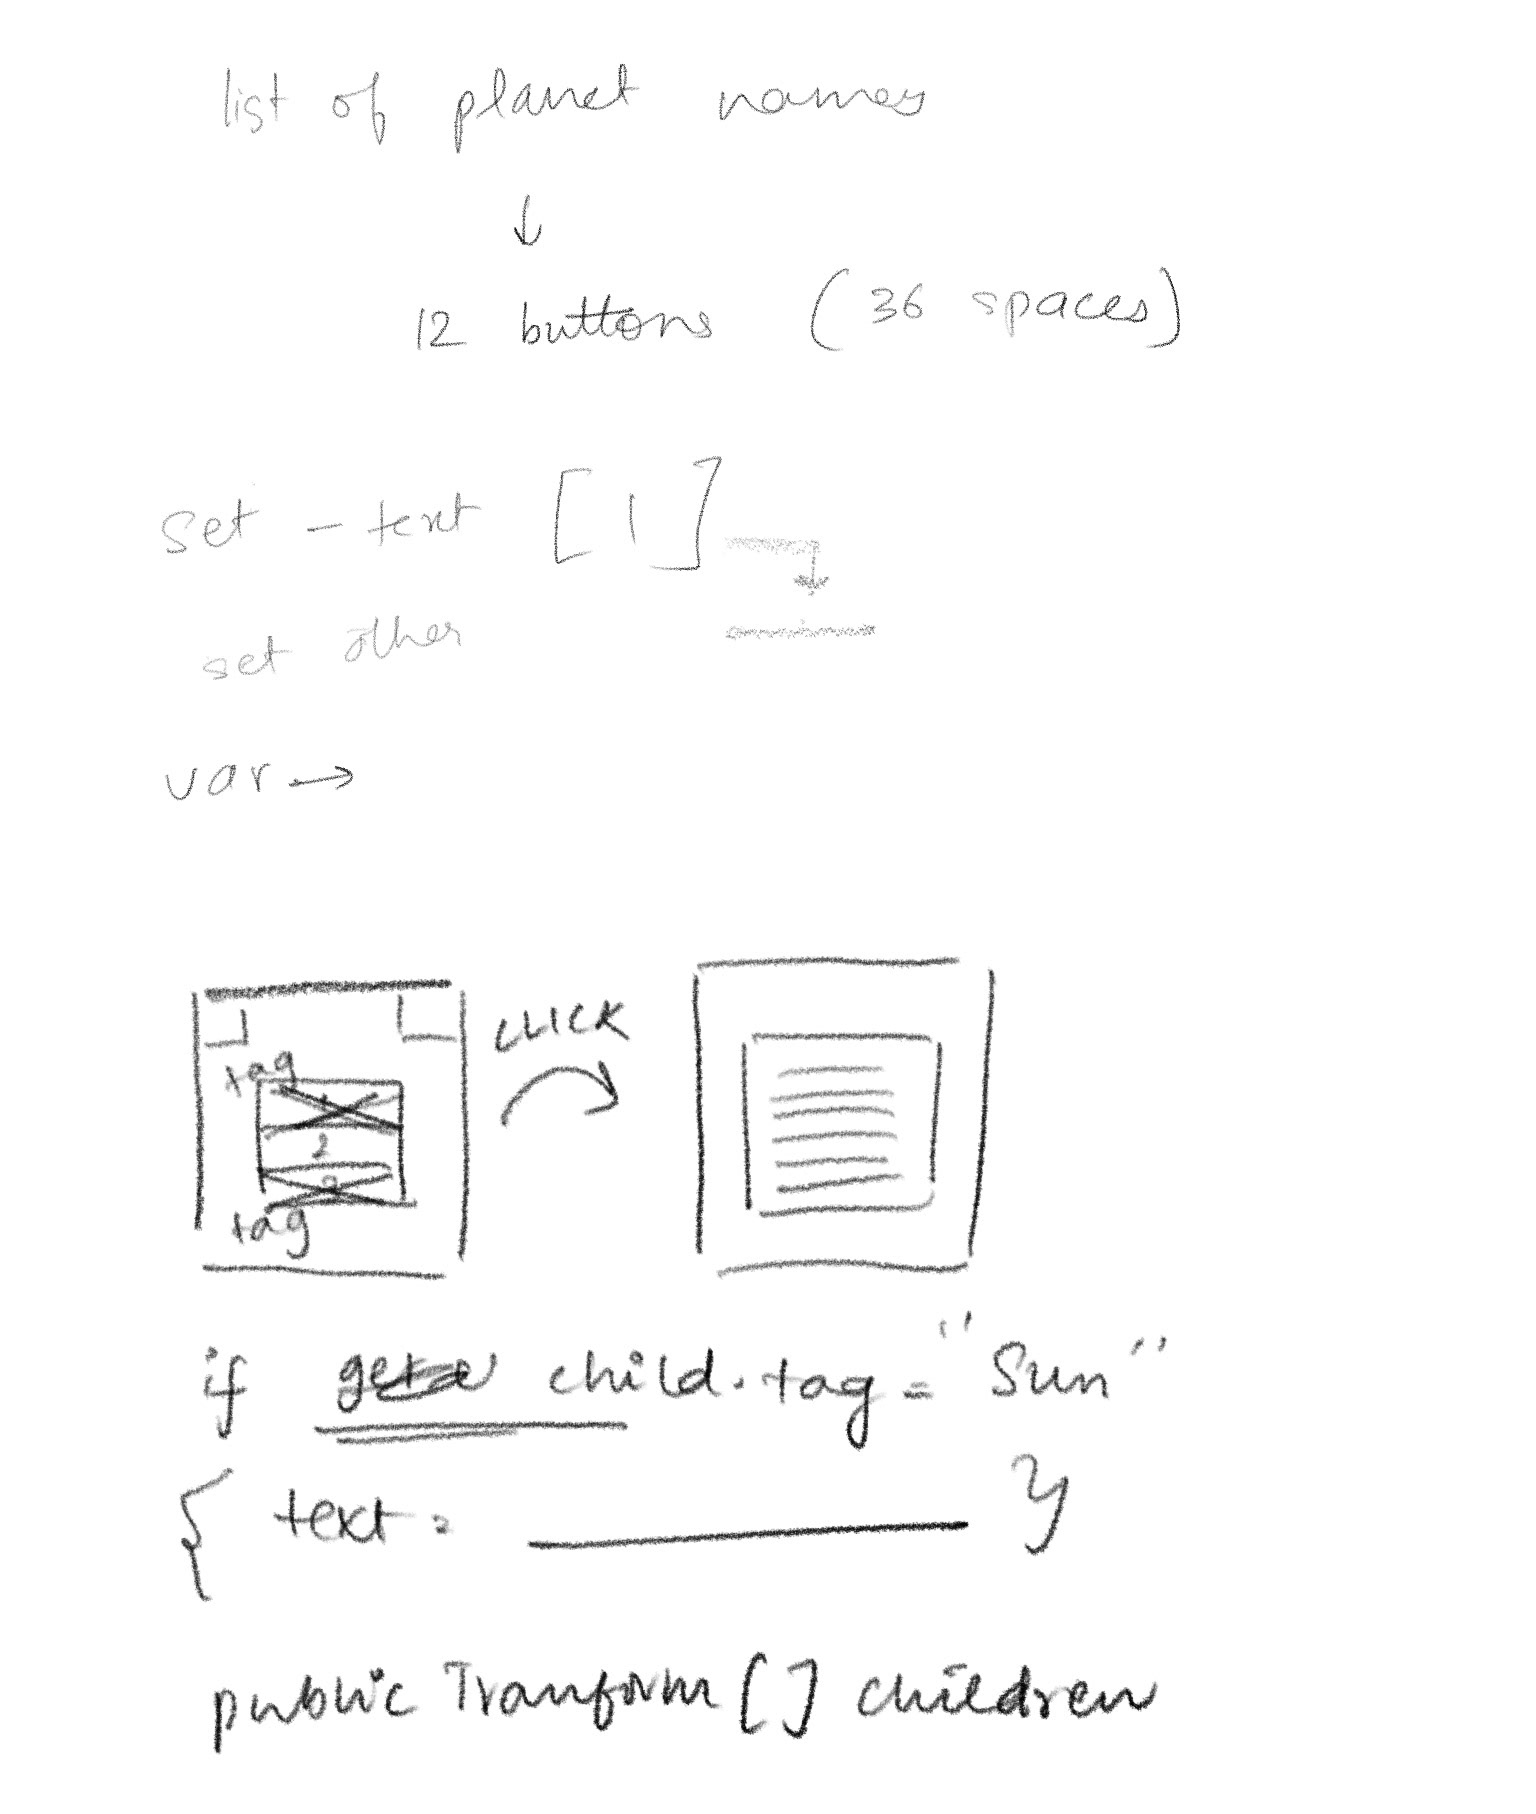 list of planet names
↓
12 buttons (36 spaces)
set - text [1]
set other
var →
CLICK
tag
2
tag
if child.tag = "Sun"
{ text = ________ }
public Tranform [] children